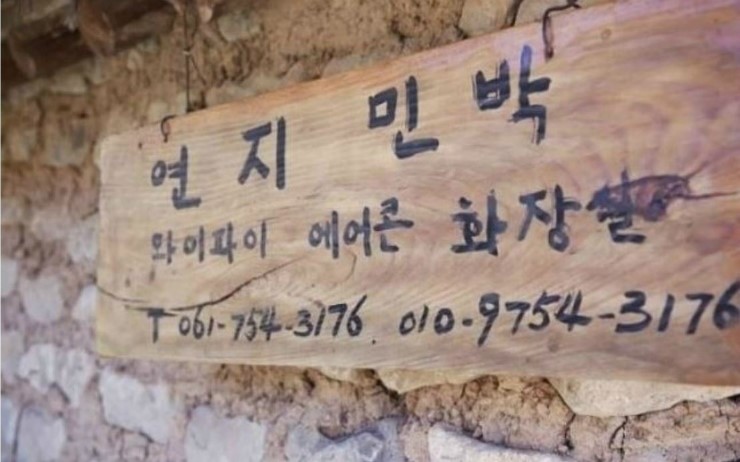 연지 민박
와이파이 에어콘 화장실
T 061-754-3176. 010-9754-3176